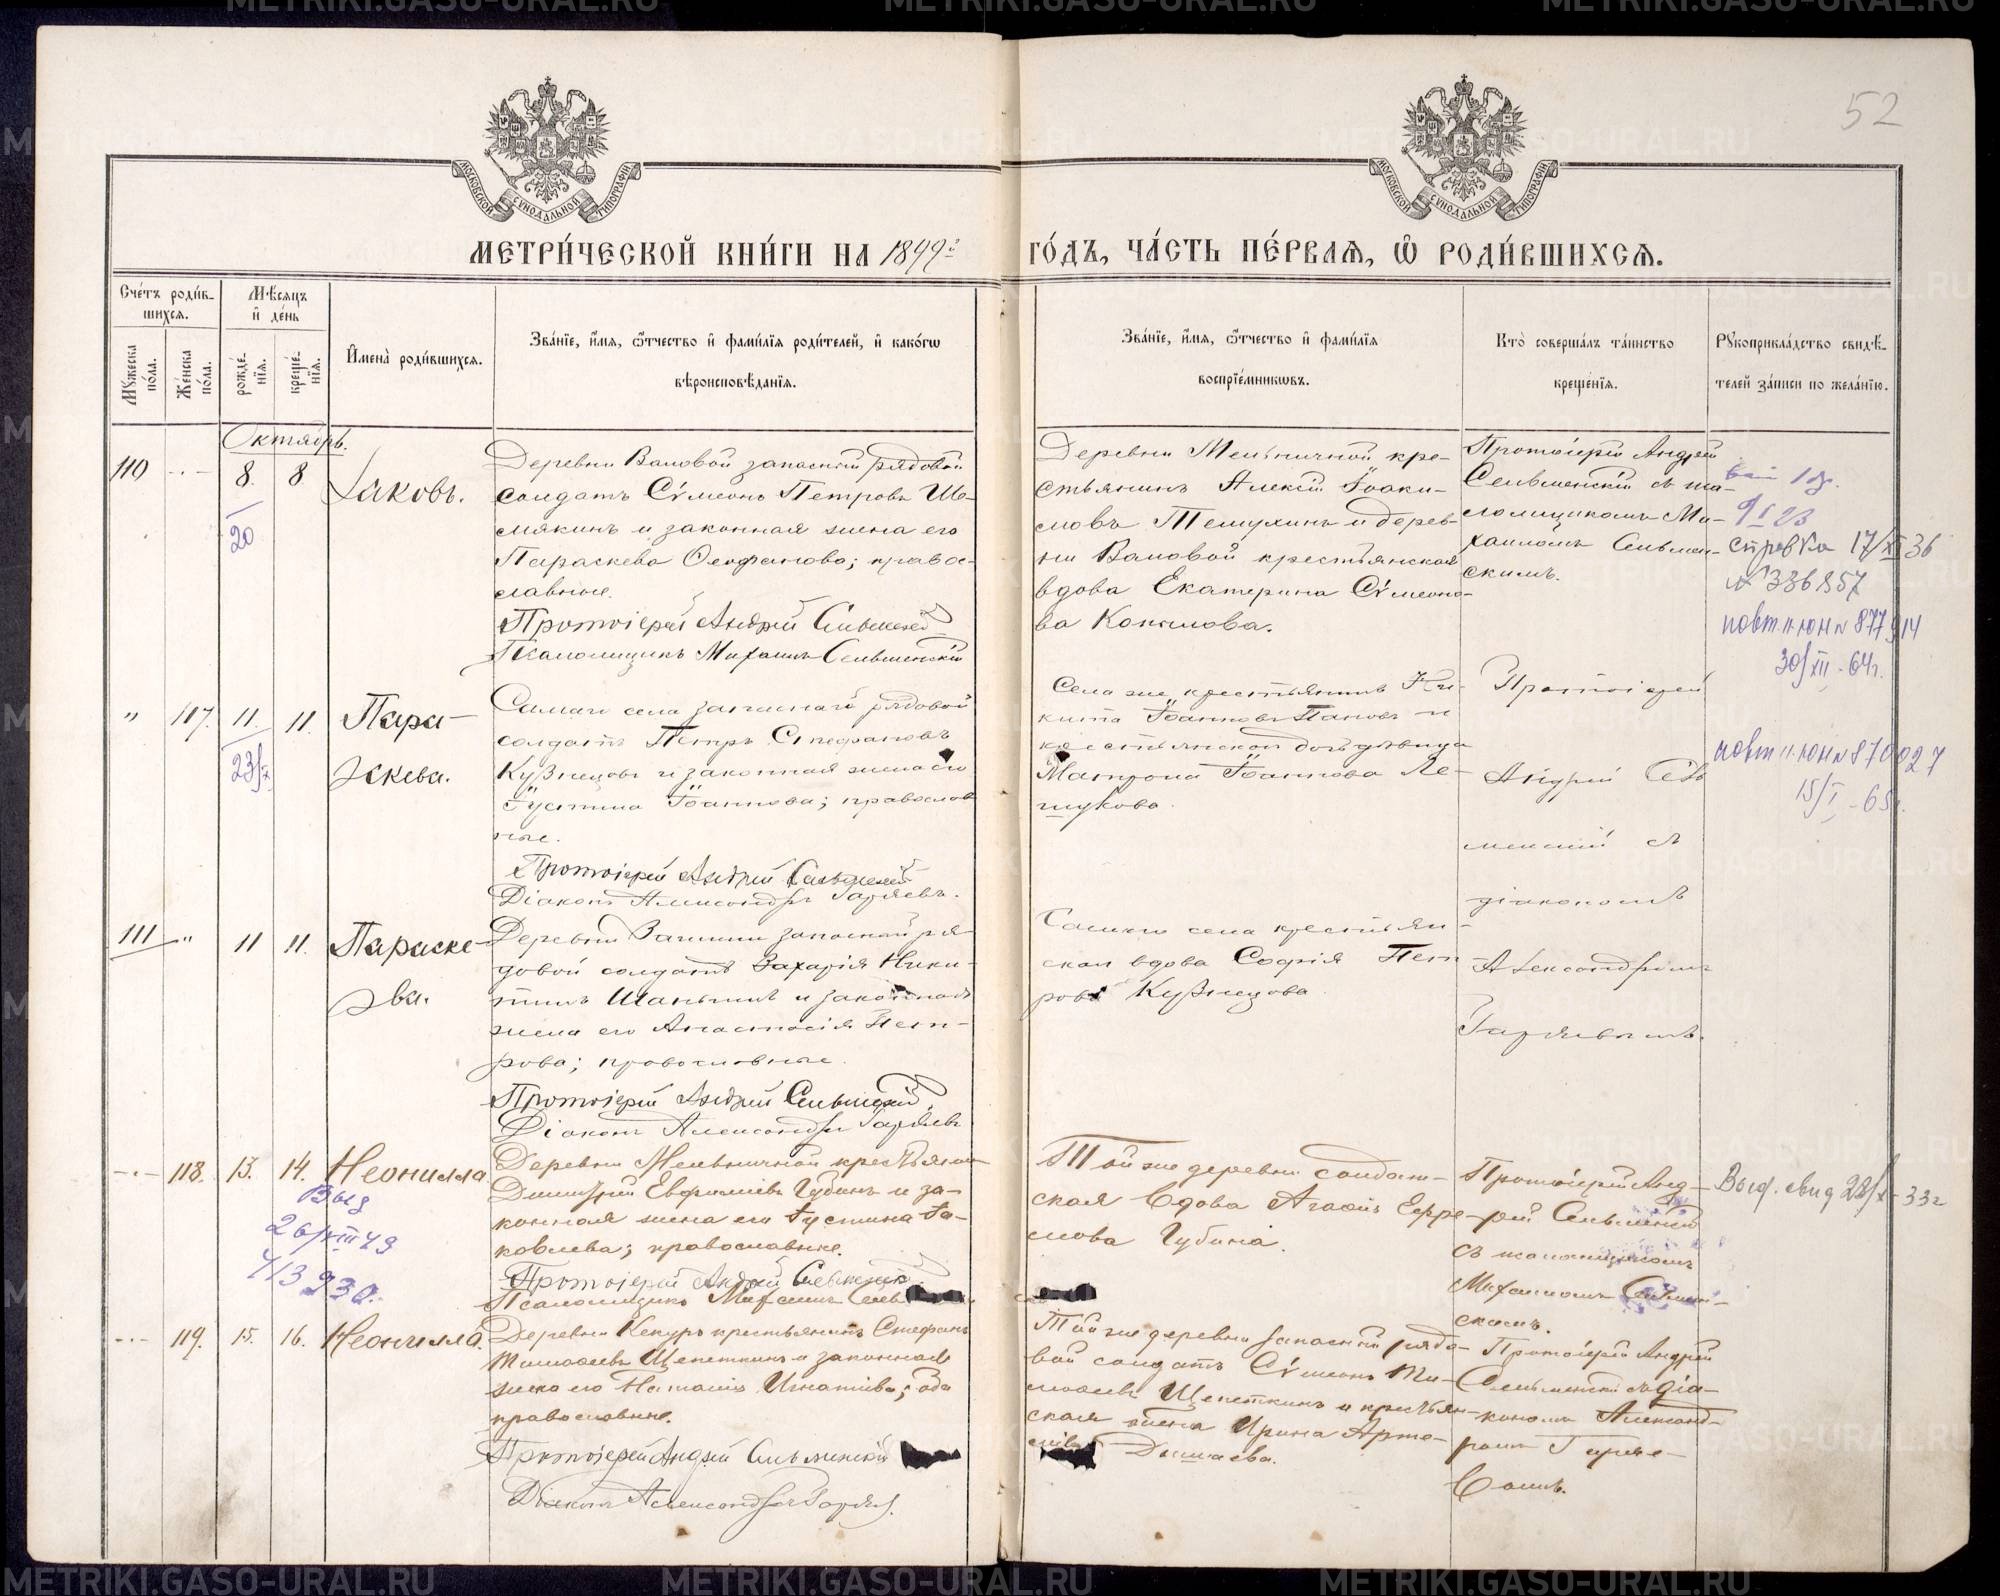 52
МОСКОВСКОЙ СѴНОДАЛЬНОЙ ТИПОГРАФІИ
МОСКОВСКОЙ СѴНОДАЛЬНОЙ ТИПОГРАФІИ
МЕТРИ́ЧЕСКОЙ КНИ́ГИ НА 1899 ГО́ДЪ, ЧА́СТЬ ПЕ́РВАЯ, Ѡ҆ РОДИ́ВШИХСЯ.
Сче́тъ роди́вшихся.
Мꙋ́жеска по́ла.
Же́нска по́ла.
Мѣ́сяцъ и҆ де́нь
рожде́нїя.
креще́нїя.
И҆мена̀ роди́вшихся.
Зва́нїе, и҆́мя, ѻ҆́тчество и҆ фами́лїя роди́телей, и҆ како́гѡ
вѣроисповѣ́данїя.
Зва́нїе, и҆́мя, ѻ҆́тчество и҆ фами́лїя
воспрїе́мникѡвъ.
Кто̀ соверша́лъ та́инство
креще́нїя.
Рꙋкоприкла́дство свидѣ́телей за́писи по жела́нїю.
Октябрь.
110 8. 8 Іаковъ.
20
Деревни Валовой запасный рядовой
солдатъ Сѵмеонъ Петровъ Ше-
мякинъ и законная жена его
Параскева Ѳеофанова; правос-
лавные.
Протоіерей Андрей Сельменскій
Псаломщикъ Михаилъ Сельменскій
Деревни Мельничной кре-
стьянинъ Алексій Іоаки-
мовъ Темухинъ и дерев-
ни Валовой крестьянская
вдова Екатерина Сѵмеоно-
ва Копылова.
Протоіерей Андрей
Сельменскій съ пса-
ломщикомъ Ми-
хаиломъ Сельмен-
скимъ.
9/I 23
справка 17/XI 36
№ 336857
повт II-ЮН № 877914
30/XII-64г.
" 117. 11. 11. Пара-
скева.
23/X
Самаго села запасный рядовой
солдатъ Петръ Стефановъ
Кузнецовъ и законная жена его
Іустина Іоаннова; православ
ные.
Протоіерей Андрей Сельменскій
Діаконъ Александръ Гаряевъ.
Села же крестьянинъ Ни-
кита Іоанновъ Пановъ и
крестьянская дочь девица
Матрона Іоаннова Ле-
щукова.
Протоіерей
Андрей Сель
менскій съ
діакономъ
Александромъ
Гаряевымъ.
повт II-ЮН № 870027
15/I-65г.
111 " 11 11. Параске-
ва.
Деревни запасной ря
довой солдатъ Захарія Ники-
тинъ Шаньгинъ и законная
жена его Анастасія Пет-
рова; православные.
Протоіерей Андрей Сельменскій
Діаконъ Александръ Гаряевъ
Самаго села крестьян-
ская вдова Софія Пет
рова Кузнецова
118. 13. 14. Неонилла
Выд
26/VIII 49
413930.
Деревни Мельничной крестьянинъ
Димитрій Евфиміевъ Губинъ и за-
конная жена его Іустина Іа-
ковлева; православные.
Протоіерей Андрей Сельменскій
Псаломщикъ Михаилъ Сель
Той же деревни солдат-
ская вдова Агафія Ефре-
мова Губина.
Протоіерей Анд-
рей Сельменскій
съ псаломщикомъ
Михаиломъ Сельмен-
скимъ.
Выд. свид 22/X-33г
119. 15. 16. Неонилла.
Деревни Кекуръ крестьянинъ Стефанъ
Тимоѳеевъ Щепеткинъ и законная
жена его Наталія Игнатіева; оба
православные.
Протоіерей Андрей Сельменскій
Діаконъ Александръ Гаряевъ.
Той же деревни запасный рядо-
вой солдатъ Сѵмеонъ Ти-
моѳеевъ Щепеткинъ и крестьян-
ская жена Ирина Арте-
міева
Протоіерей Андрей
Сельменскій съ діа-
кономъ Александ-
ромъ Гаряе-
вымъ.
METRIKI.GASO-URAL.RU